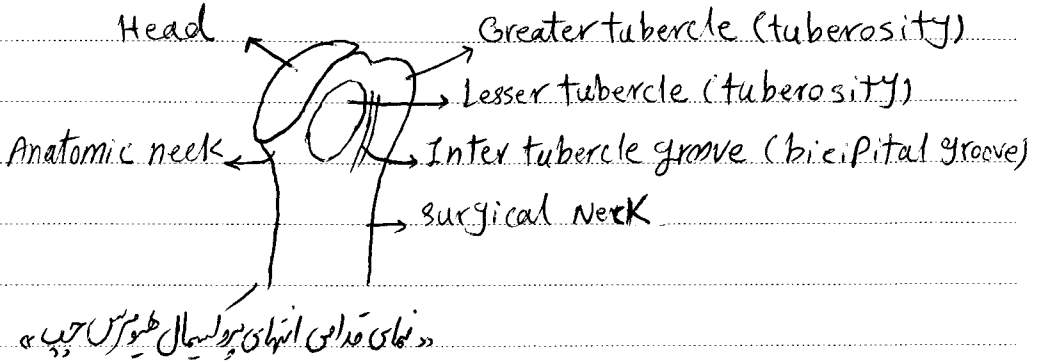 Head Greater tubercle (tuberosity)
Lesser tubercle (tuberosity)
Anatomic neck Inter tubercle groove (bicipital groove)
Surgical Neck
«نمای قدامی انتهای پروگسیمال هیومرس چپ»